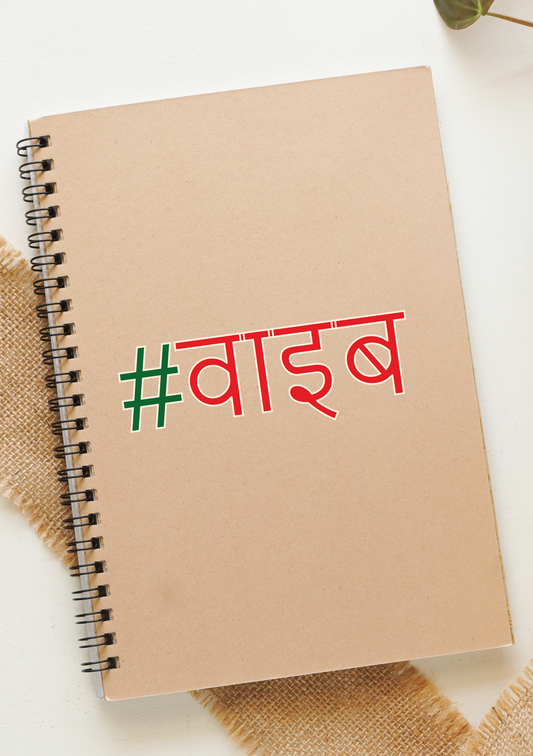 #वाइब